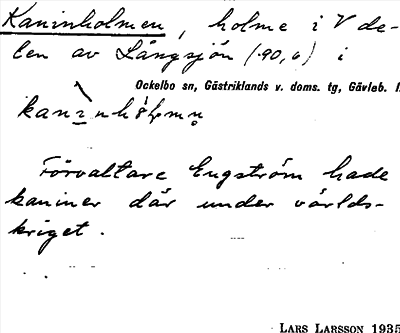 Kaninholmen, holme i V de-
len av Långsjön (·90,6) i
Ockelbo sn, Gästriklands v. doms. tg, Gävleb. l.
Förvaltare Engström hade
kaniner där under världs-
kriget.
LARS LARSSON 1935